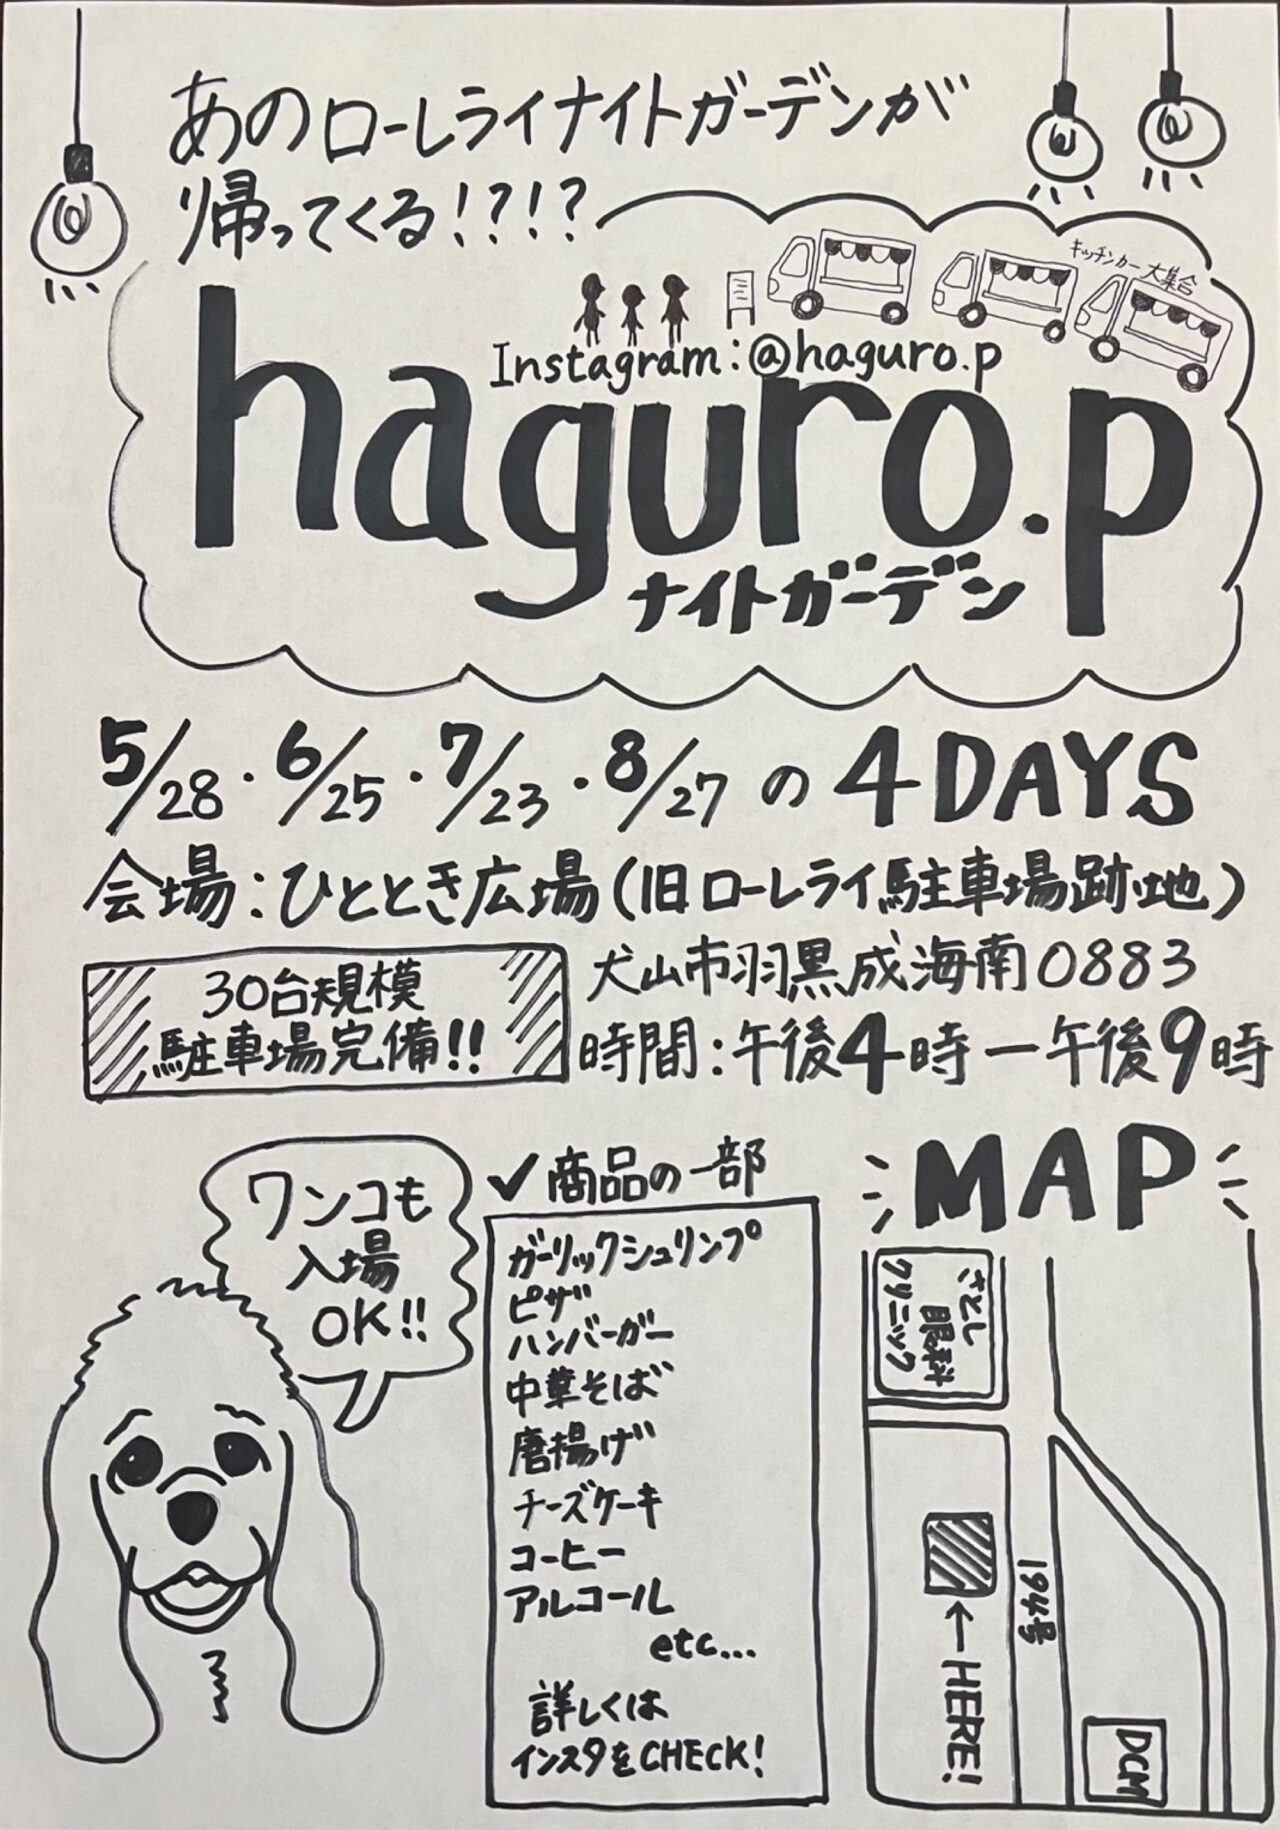 あのローレライナイトガーデンが
帰ってくる!?!?
キッチンカー大集合
Instagram:@haguro.p
haguro.p
ナイトガーデン
5/28・6/25・7/23・8/27の4DAYS
会場:ひととき広場(旧ローレライ駐車場跡地)
犬山市羽黒成海南0883
30台規模
駐車場完備!!
時間:午後4時ー午後9時
ワンコも
入場
OK!!
✓商品の一部
ガーリックシュリンプ
ピザ
ハンバーガー
中華そば
唐揚げ
チーズケーキ
コーヒー
アルコール
etc...
詳しくは
インスタをCHECK!
MAP
さとし
眼科
クリニック
194号
←HERE!
DCM